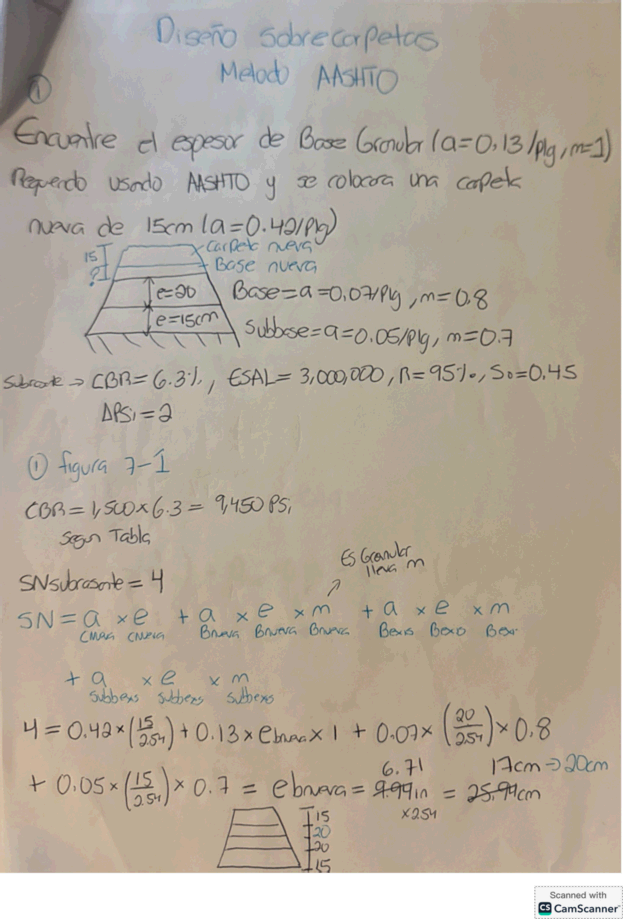 Diseño Sobrecarpetas
Metodo AASHTO
①
Encuentre el espesor de Base Granular (a=0,13/plg, m=1)
Requerido usando AASHTO y se colocara una carpeta
nueva de 15cm (a=0.42/Plg)
15 Carpeta nueva
? Base nueva
e=20 Base=a=0.07/Plg, m=0.8
e=15cm Subbase=a=0.05/Plg, m=0.7
Subrasante → CBR=6.3%, ESAL=3,000,000, R=95%, So=0.45
ΔPSi=2
① figura 7-1
CBR=1,500×6.3=9,450 PSi
Segun Tabla
Es Granular
lleva m
SNsubrasante=4
SN=a×e + a×e×m + a×e×m
Cnueva Cnueva Bnueva Bnueva Bnueva Bexis Bexo Bexi
+ a×e×m
Subbexis Subbexis Subbexis
4=0.42×(15/2.54)+0.13×ebnueva×1+0.07×(20/254)×0.8
6.71 17cm→20cm
+0.05×(15/2.54)×0.7=ebnueva=9.99in=25.94cm
×2.54
15
20
20
15
Scanned with
CS CamScanner